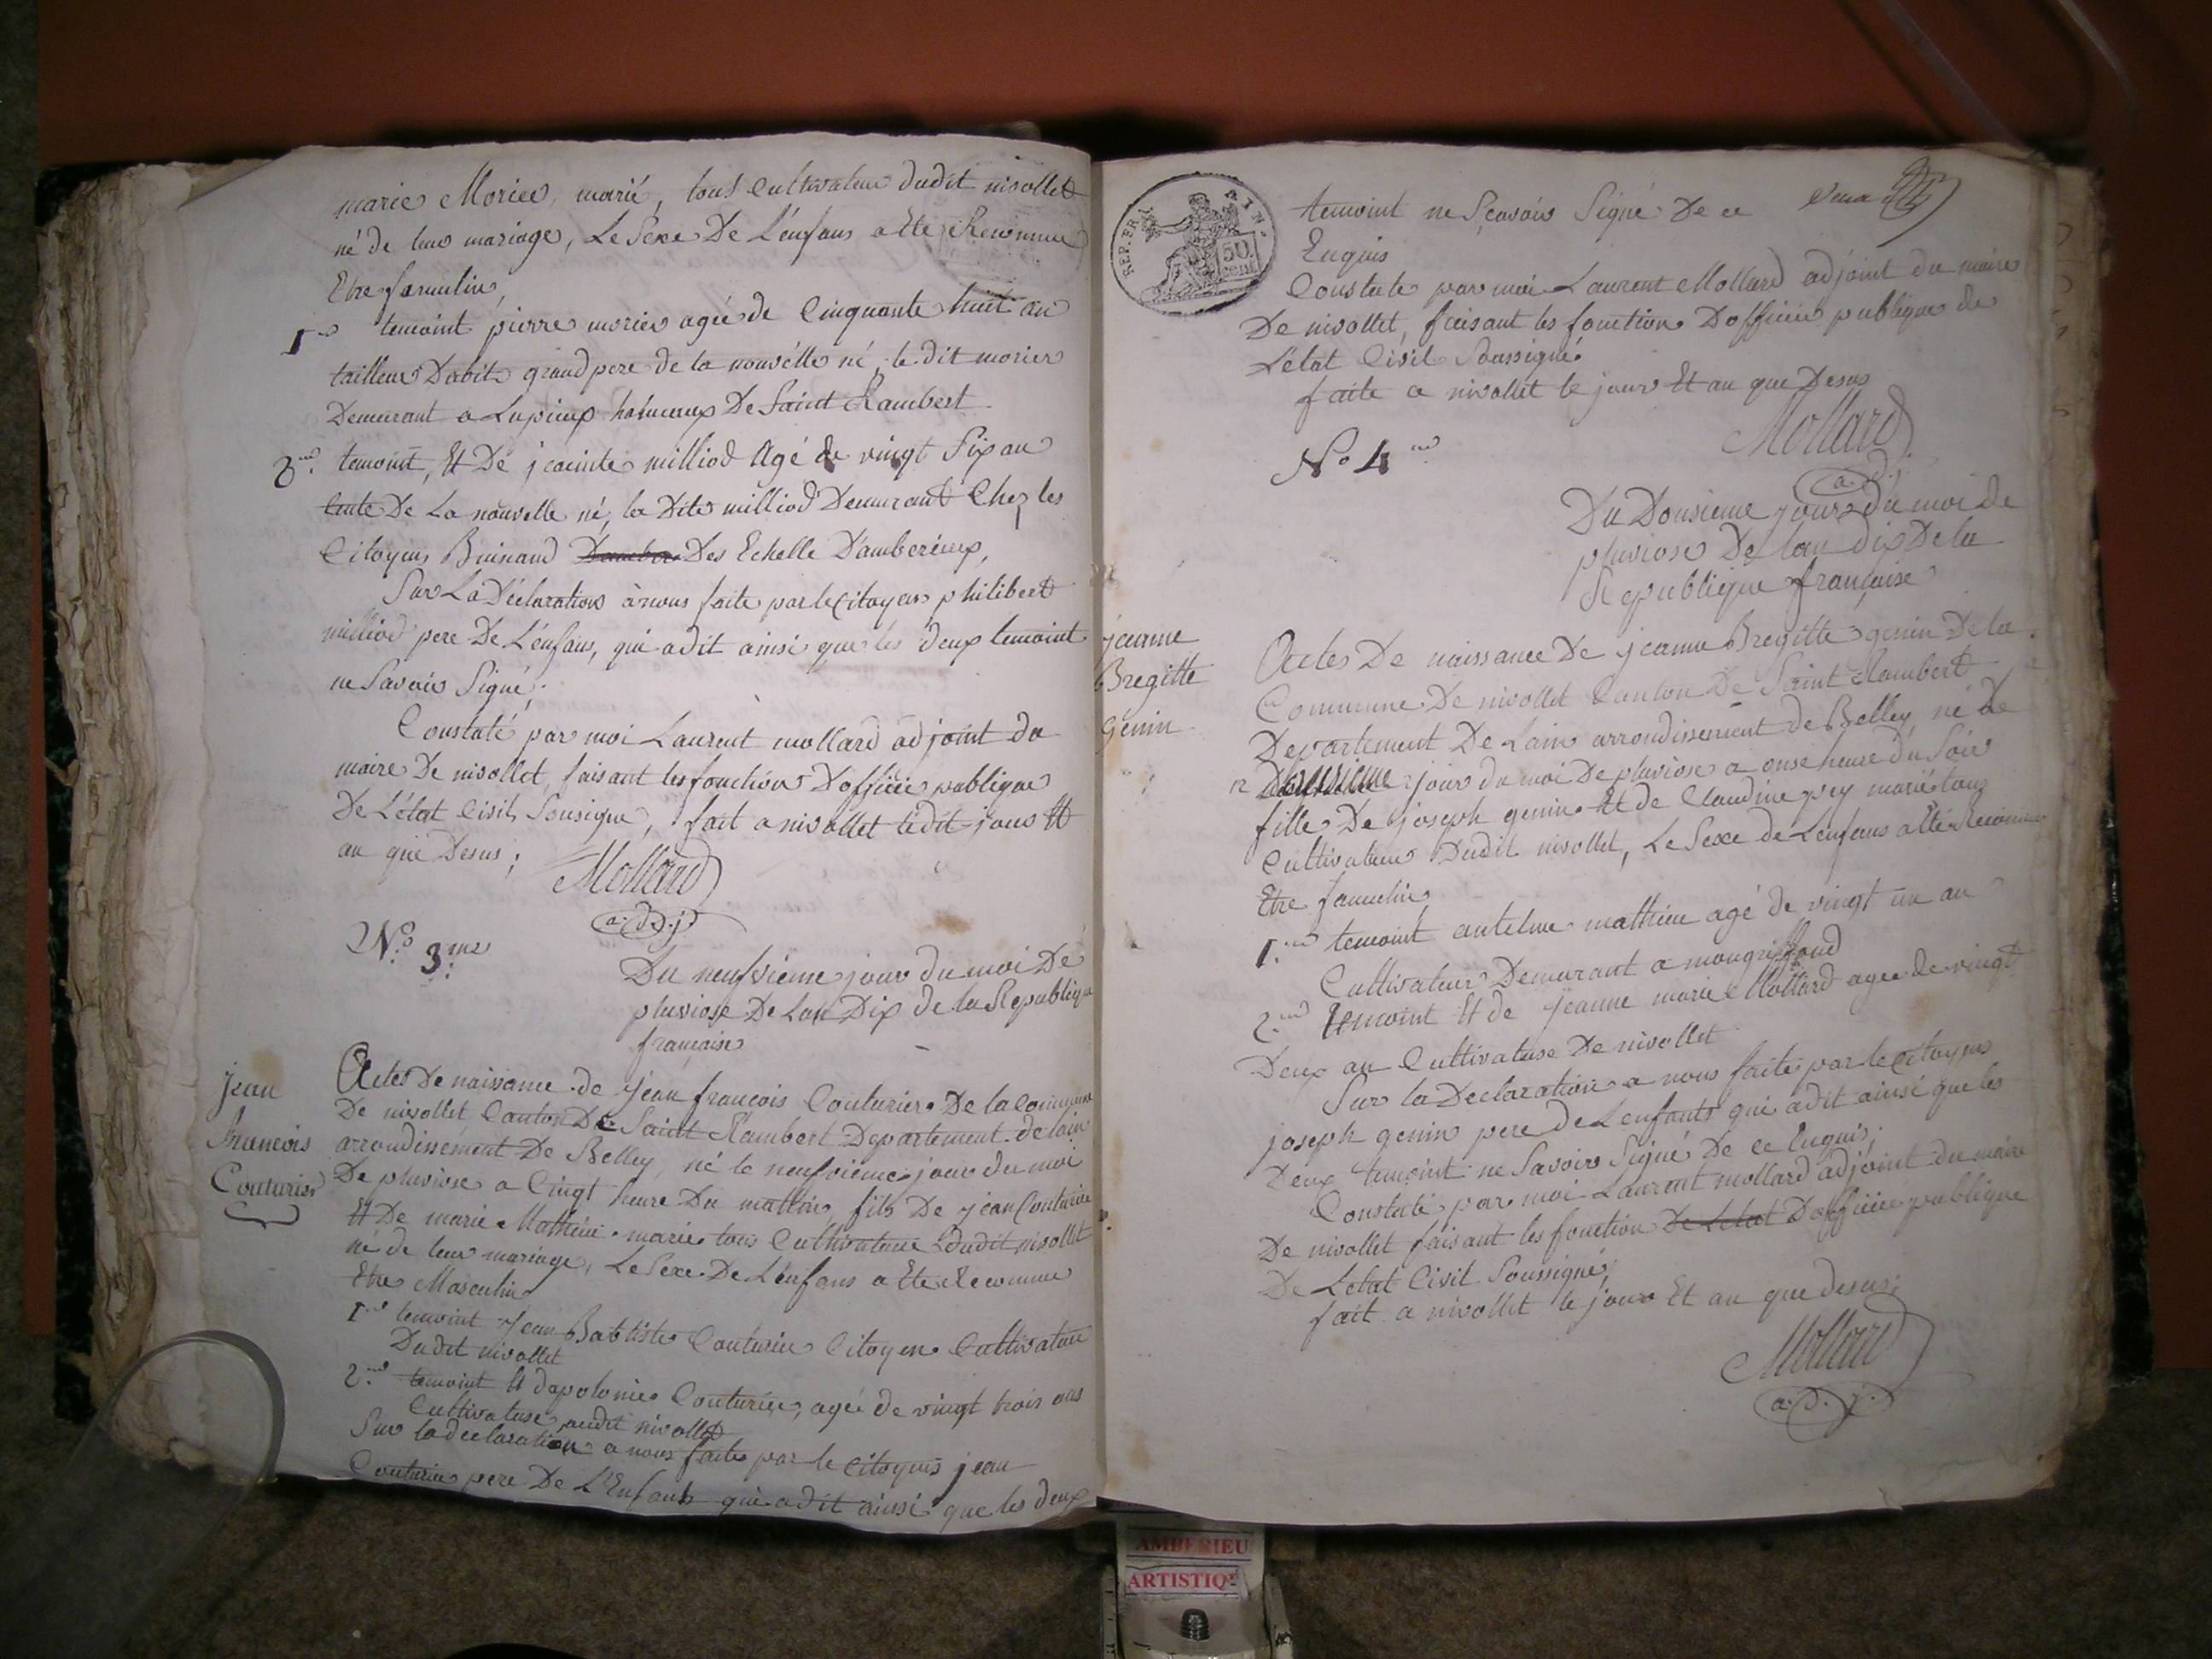 marie Morier, marié, tous Cultivateur dudit nivollet
né de leur mariage, Le Sexe De L'enfans a Ete Reconnue
Etre faruulin,
1er temoint pierre morier agée de Cinquante huit an
tailleur Dabit grand pere de la nouvélle né, le dit morier
Demeurant a Lupieux hameaux De Saint Rambert
2me. temoint, Et De jacinte milliod Agé de vingt Six an
tente De La nouvelle né, la Dite milliod Demeurant Chez les
Citoyens Brinand Des Echelle D'amberieux,
Sur La Déclaration à nous faite par le Citoyen philibert
milliod pere De L'énfans, qui a dit ainsi que les deux temoint
ne Savoir Signé;
Constaté par moi Laurent mollard adjoint du
maire De nivollet, faisant les fonction D'officie publique
De L'état Civil Sousigne, fait a nivollet ledit jour Et
an que Desus;
Mollard
a.d.j
No. 3.me
Du neufvieme jour du moi De
pluviose De Lan Dix de la Republique
francaise
Jean
Francois
Couturier
Actes De naissance de jean francois Couturier De la Commune
De nivollet Canton De Saint Rambert Departement de lain
arrondissement De Belley, né le neufvieme jour du moi
De pluviose a Cinqt heure Du mattin, fils De jean Couturier
Et De marie Mathieu marié tous Cultivateur dudit nivollet
né de leur mariage, Le Sexe De L'énfans a Ete Reconnue
Etre Masculin
1er temoint jean Babtiste Couturier Citoyen Cultivateur
Dudit nivollet
2me temoint Et dapolonie Couturier, agée de vingt trois ans
Cultivatuse audit nivollet
Sur la declaration a nous faite par le Citoyens jean
Couturier pere De L'Enfants qui a dit ainsi que les deux
REP. FRA. AIN.
50 cent
temoint ne Scavoir Signé De ce
Enquis
Constate par moi Laurent Mollard adjoint du maire
De nivollet, faisant les fonction D'officie publique de
L'état Civil Soussigné
faite a nivollet le jour Et an que Desus
Mollard
a.d.j.
No 4me
Du Dousieme jour du moi de
pluviose De lan dix De la
Republique française
jeanne
Bregitte
Genin
Actes De naissance De jeanne Bregitte genin De la
Commune De nivollet Canton De Saint Rambert
Departement De Lain arrondissement de Belley, né le
12 jour du moi De pluviose a onse heure du Soir
fille De joseph genin Et de Claudine pey marié tous
Cultivateur Dudit nivollet, Le Sexe de L'enfans a Eté Reconnu
Etre famelin
1er temoint antelme mathieu agé de vingt un an
Cultivateur Demeurant a mongriffond
2me temoint Et de jeanne marie Mollard agee de vingt
Deux an Cultivatuse De nivollet
Sur la Declaration a nous faite par le Citoyens
joseph genin pere de L'enfants qui a dit ainsi que les
Deux temoint ne Savoir Signé De ce Enquis;
Constaté par moi Laurent mollard adjoint du maire
De nivollet faisant les fonction De L'etat D'officie publique
De L'etat Civil Soussigné,
fait a nivollet le jour Et an que desus;
Mollard
a.d.j.
AMBERIEU
ARTISTIQ